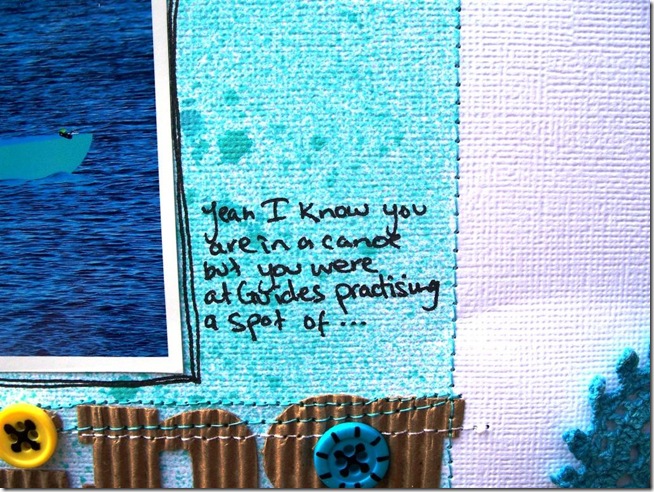 Yeah I know you
are in a canoe
but you were
at Guides practising
a spot of...